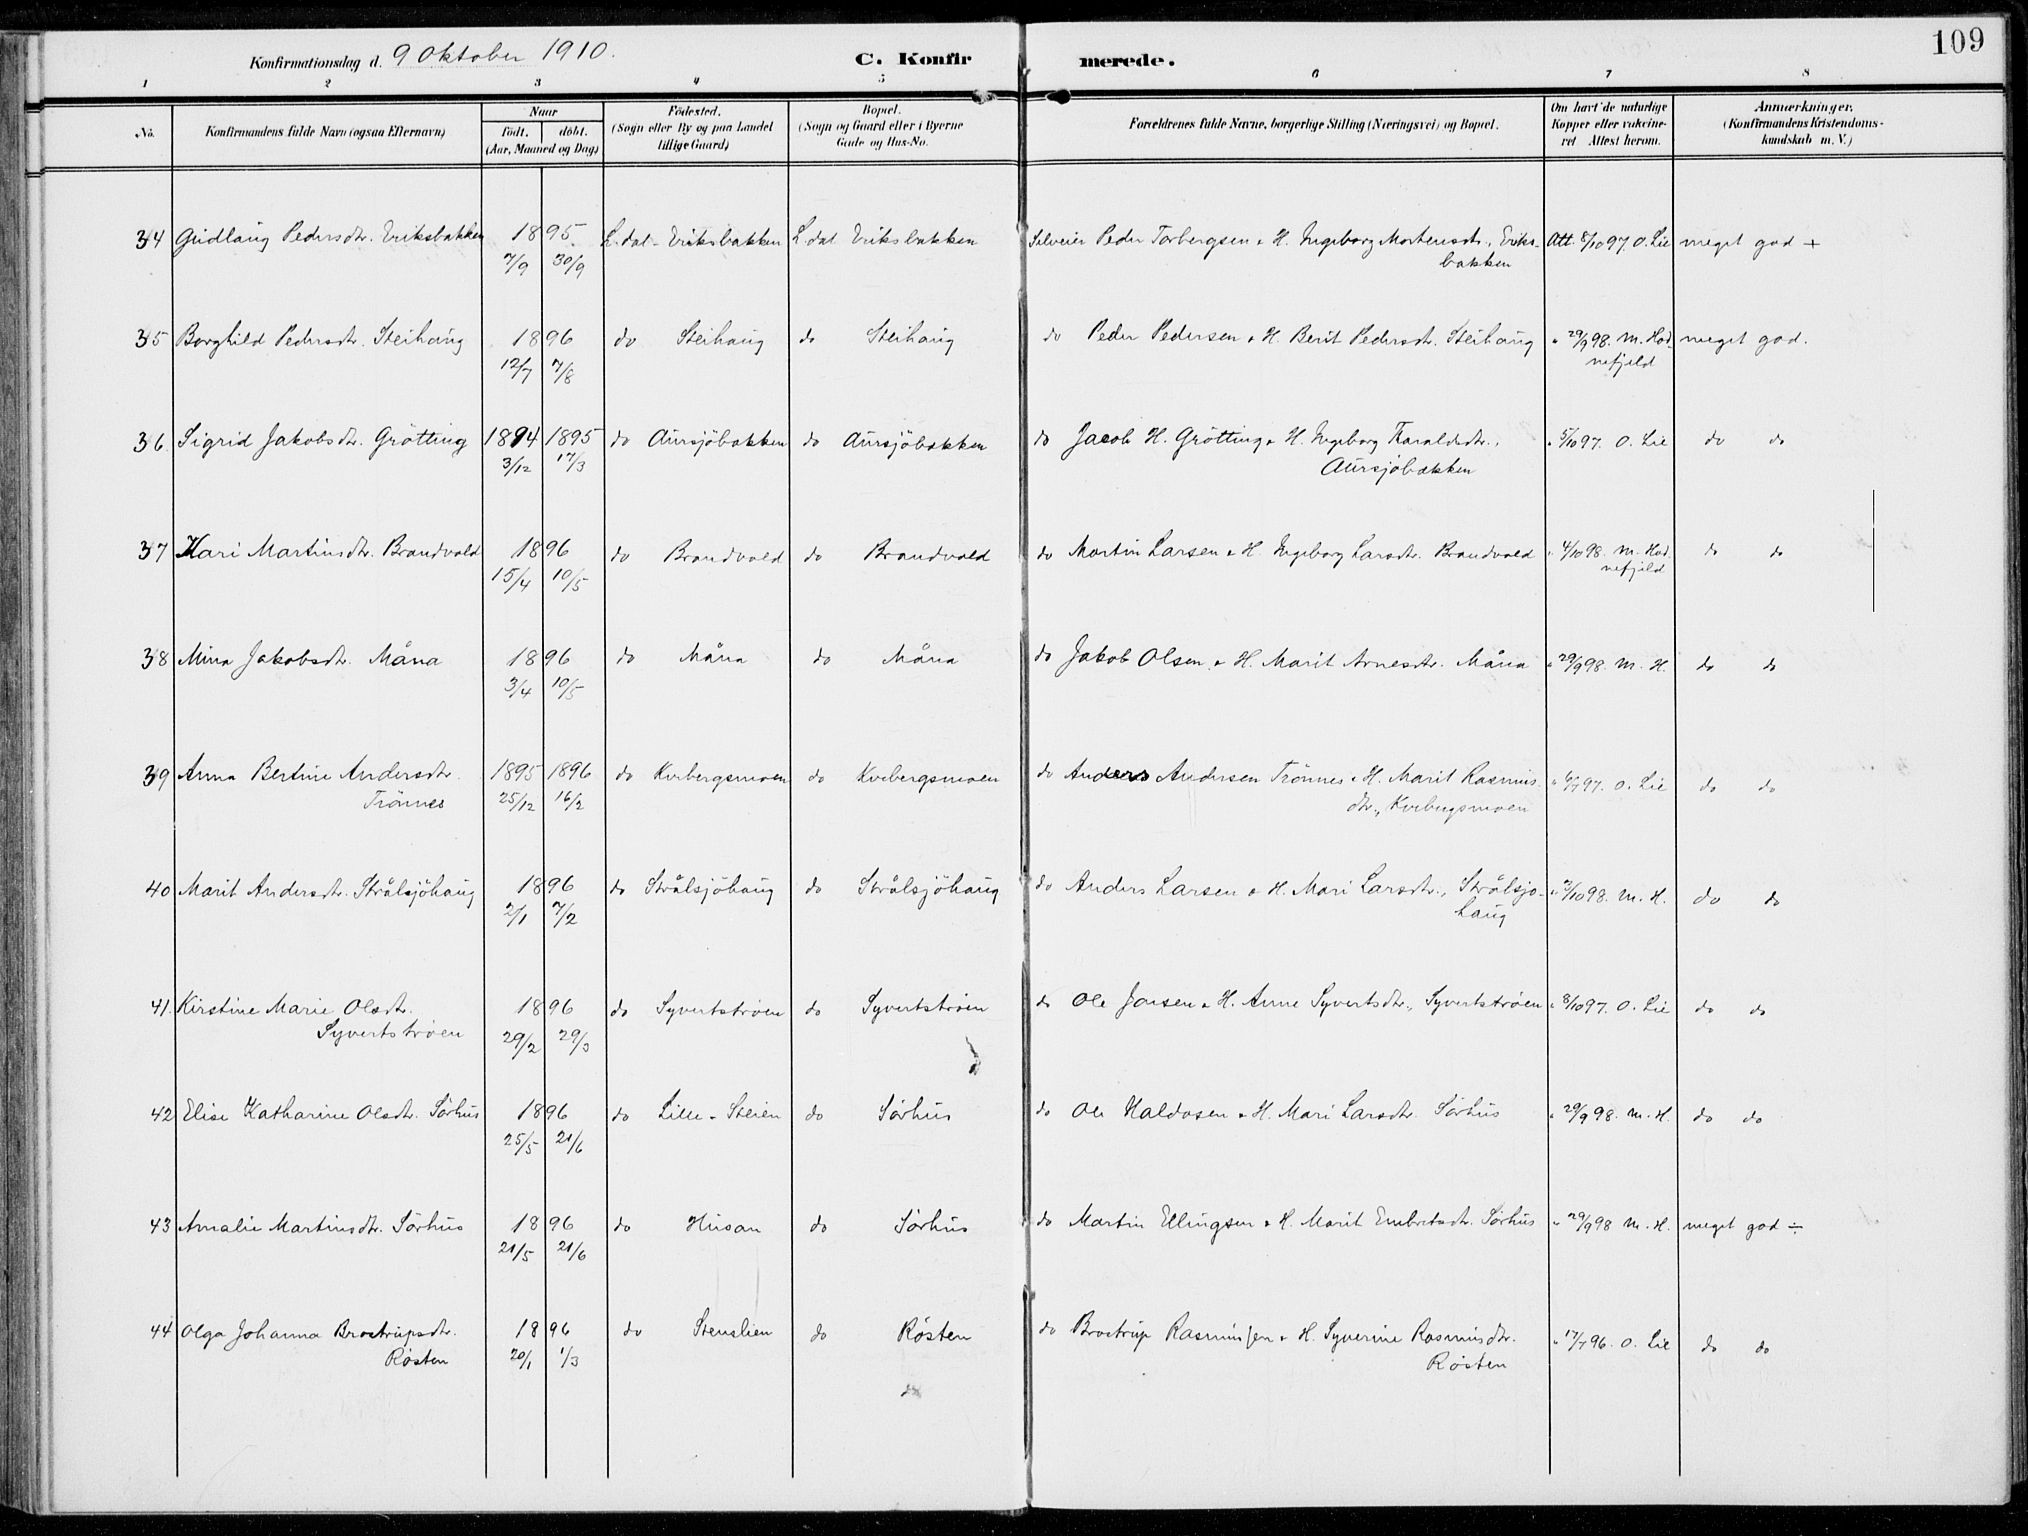 109
Konfirmationsdag d. 9 Oktober 1910.
C. Konfirmerede.
1 2 3 4 5 6 7 8
No.
Konfirmandens fulde Navn (ogsaa Efternavn)
Naar
født. døbt.
(Aar, Maaned og Dag)
Fødested.
(Sogn eller By og paa Landet
tillige Gaard)
Bopæl.
(Sogn og Gaard eller i Byerne
Gade og Hus-No.
Forældrenes fulde Navne, borgerlige Stilling (Næringsvei) og Bopæl.
Om havt de naturlige
Kopper eller vakcine-
ret Attest herom.
Anmærkninger.
(Konfirmandens Kristendoms-
kundskab m. V.)
34 Gudlaug Pedersdtr. Eriksbakken 1895. L.dal - Eriksbakken L.dal Eriksbakken Selveier Peder Torbergsen & H. Ingeborg Mortensdtr., Eriks- Att. 8/10 97. O. Lie meget god +
7/9 30/9 bakken
35 Borghild Pedersdtr. Steihaug 1896 do Steihaug do Steihaug do Peder Pedersen & H. Berit Pedersdtr. Steihaug " 29/9 98. M. Hod- meget god.
12/7 7/8 nefjeld
36 Sigrid Jakobsdtr. Grötting 1894 1895 do Aursjöbakken do Aursjöbakken do Jacob H. Grötting & H. Ingeborg Haraldsdtr., " 5/10 97. O. Lie do do
3/12 17/3 Aursjöbakken
37 Kari Martinsdtr. Brandvold 1896 do Brandvold do Brandvold do Martin Larsen & H. Ingeborg Larsdtr. Brandvold " 4/10 98. M. Hod- do do
15/4 10/5 nefjeld
38 Mina Jakobsdtr. Måna 1896 do Måna do Måna do Jakob Olsen & H. Marit Arnesdtr. Måna " 29/9 98. M. H. do do
3/4 10/5
39 Anna Bertine Andersdtr. 1895 1896 do Kvebergsmoen do Kvebergsmoen do Anders Andersen Trönnes & H. Marit Rasmus- " 6/7 97. O. Lie do do
Trönnes 25/12 16/2 dtr., Kvebergsmoen
40 Marit Andersdtr. Strålsjöhaug 1896 do Strålsjöhaug do Strålsjöhaug do Anders Larsen & H. Mari Larsdtr., Strålsjö- " 3/10 98. M. H. do do
2/1 7/2 haug
41. Kirstine Marie Olsdtr. 1896 do Syvertströen do Syvertströen do Ole Jonsen & H. Anne Syvertsdtr., Syvertströen " 8/10 97. O. Lie do do
Syvertströen 29/2 29/3
42 Elise Katharine Olsdtr. Sörhus 1896 do Lille-Steien do Sörhus do Ole Haldosen & H. Mari Larsdtr. Sörhus " 29/9 98. M. H. do do
25/5 21/6
43 Amalie Martinsdtr. Sörhus 1896 do Husan do Sörhus do Martin Ellingsen & H. Marit Embretsdtr. Sörhus " 29/9 98 M. H. meget god ÷
21/5 21/6
44 Olga Johanna Brostrupsdtr. 1896 do Stenslien do Rösten do Brostrup Rasmussen & H. Syverine Rasmusdtr. " 17/7 96. O. Lie do do
Rösten 20/1 1/3 Rösten